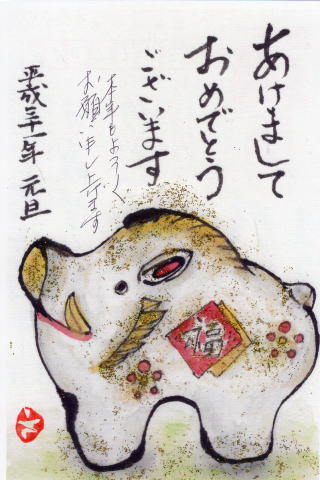 あけまして
おめでとう
ございます
本年もよろしく
お願い申し上げます
平成三十一年 元旦
福